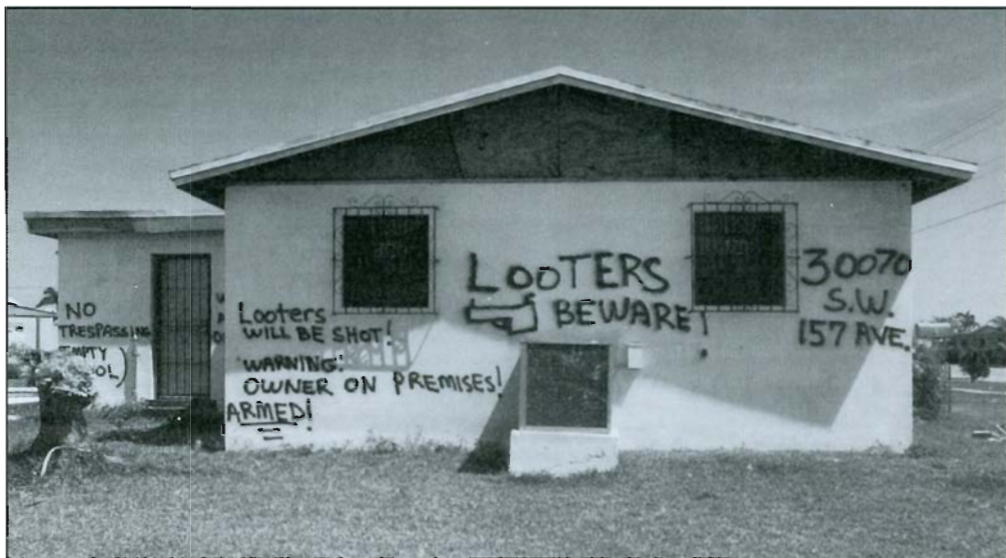 NO
TRESPASSING
EMPTY
Looters
WILL BE SHOT!
WARNING:
OWNER ON PREMISES!
ARMED!
LOOTERS
BEWARE!
30070
S.W.
157 AVE.